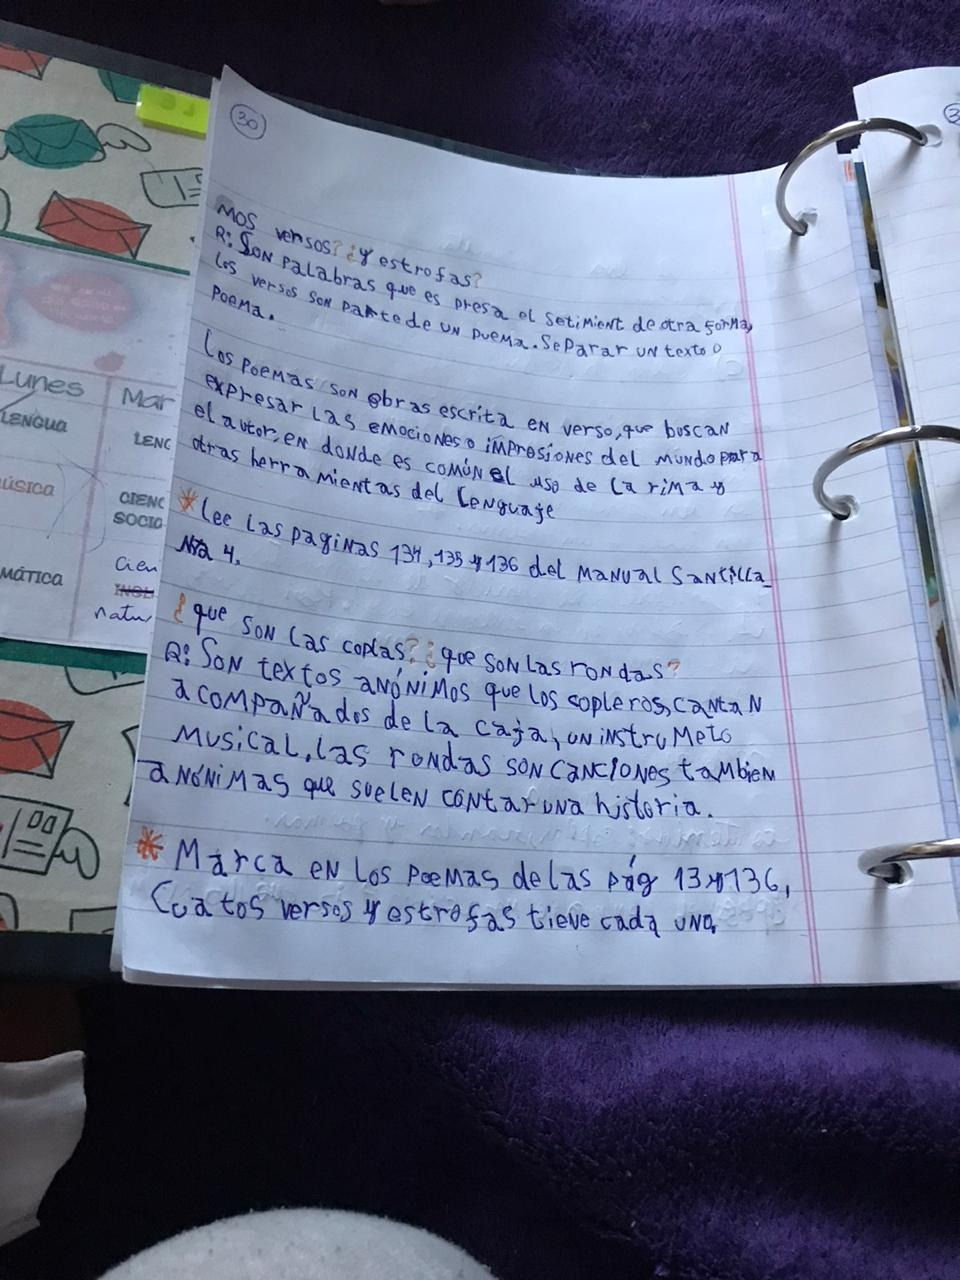 30
MOS versos? ¿Y estrofas?
R: SON PALABRAS que es presa el setimient de otra forma,
los versos son parte de un puema. SePARAR UN texto o
Poema.
Los Poemas son obras escrita en verso, que buscan
expresar Las emociones o impresiones del mundo para
el autor, en donde es común el uso de La rima y
otras herramientas del Lenguaje
* Lee Las paginas 134, 135 y 136 del manual Santilla_
Na 4.
¿que son las coplas? ¿que son las rondas?
R: Son textos anónimos que los copleros, cantan
acompañados de la caja, un instrumeto
musical, las rondas son canciones tambien
anónimas que suelen contar una historia.
* Marca en los poemas de las pág 13 y 136,
Cuatos versos y estrofas tieve cada uno,
Lunes
Mar
LENGUA
LENC
ÚSICA
CIENC
SOCIA
MÁTICA
Cien
natur